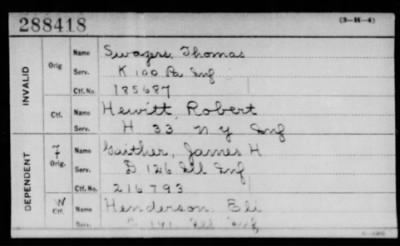 288418
(3-M-4)
INVALID
Orig. Name Swagers, Thomas
Serv. K 100 Pa Inf
Ctf. No. 185687
Ctf. Name Hewitt, Robert
Serv. H 33 N Y Inf
DEPENDENT
F Orig. Name Gaither, James H
Serv. D 126 Ill Inf
Ctf. No. 216793
W Ctf. Name Henderson Eli
Serv. Ill Inf